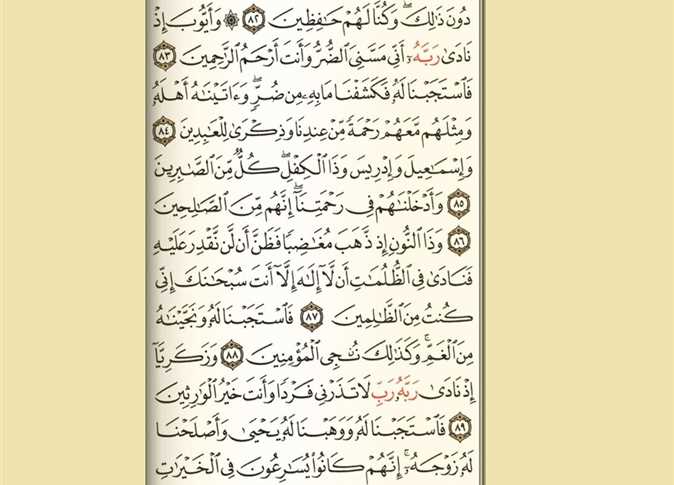 دُونَ ذَٰلِكَۖ وَكُنَّا لَهُمۡ حَٰفِظِينَ ۝٨٢ ۞ وَأَيُّوبَ إِذۡ
نَادَىٰ رَبَّهُۥٓ أَنِّي مَسَّنِيَ ٱلضُّرُّ وَأَنتَ أَرۡحَمُ ٱلرَّٰحِمِينَ ۝٨٣
فَٱسۡتَجَبۡنَا لَهُۥ فَكَشَفۡنَا مَا بِهِۦ مِن ضُرّٖۖ وَءَاتَيۡنَٰهُ أَهۡلَهُۥ
وَمِثۡلَهُم مَّعَهُمۡ رَحۡمَةٗ مِّنۡ عِندِنَا وَذِكۡرَىٰ لِلۡعَٰبِدِينَ ۝٨٤
وَإِسۡمَٰعِيلَ وَإِدۡرِيسَ وَذَا ٱلۡكِفۡلِۖ كُلّٞ مِّنَ ٱلصَّٰبِرِينَ
۝٨٥ وَأَدۡخَلۡنَٰهُمۡ فِي رَحۡمَتِنَآۖ إِنَّهُم مِّنَ ٱلصَّٰلِحِينَ
۝٨٦ وَذَا ٱلنُّونِ إِذ ذَّهَبَ مُغَٰضِبٗا فَظَنَّ أَن لَّن نَّقۡدِرَ عَلَيۡهِ
فَنَادَىٰ فِي ٱلظُّلُمَٰتِ أَن لَّآ إِلَٰهَ إِلَّآ أَنتَ سُبۡحَٰنَكَ إِنِّي
كُنتُ مِنَ ٱلظَّٰلِمِينَ ۝٨٧ فَٱسۡتَجَبۡنَا لَهُۥ وَنَجَّيۡنَٰهُ
مِنَ ٱلۡغَمِّۚ وَكَذَٰلِكَ نُـۨجِي ٱلۡمُؤۡمِنِينَ ۝٨٨ وَزَكَرِيَّآ
إِذۡ نَادَىٰ رَبَّهُۥ رَبِّ لَا تَذَرۡنِي فَرۡدٗا وَأَنتَ خَيۡرُ ٱلۡوَٰرِثِينَ
۝٨٩ فَٱسۡتَجَبۡنَا لَهُۥ وَوَهَبۡنَا لَهُۥ يَحۡيَىٰ وَأَصۡلَحۡنَا
لَهُۥ زَوۡجَهُۥٓۚ إِنَّهُمۡ كَانُواْ يُسَٰرِعُونَ فِي ٱلۡخَيۡرَٰتِ